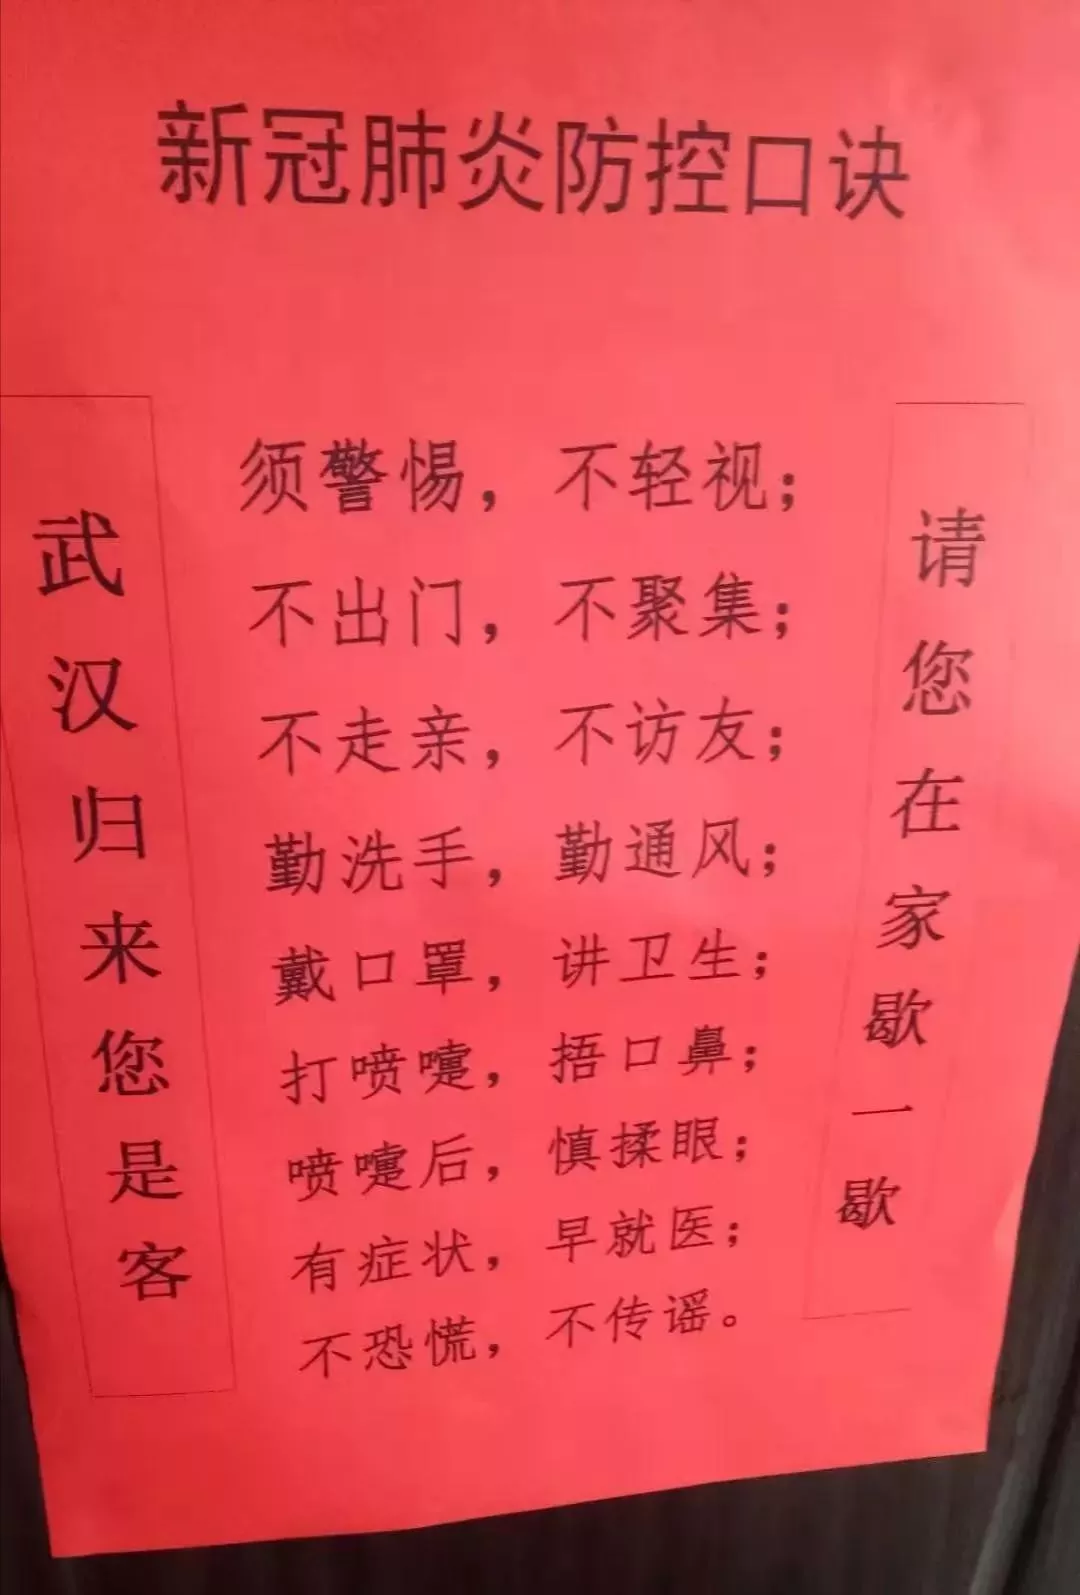 新冠肺炎防控口诀
武汉归来您是客
须警惕，不轻视；
不出门，不聚集；
不走亲，不访友；
勤洗手，勤通风；
戴口罩，讲卫生；
打喷嚏，捂口鼻；
喷嚏后，慎揉眼；
有症状，早就医；
不恐慌，不传谣。
请您在家歇一歇